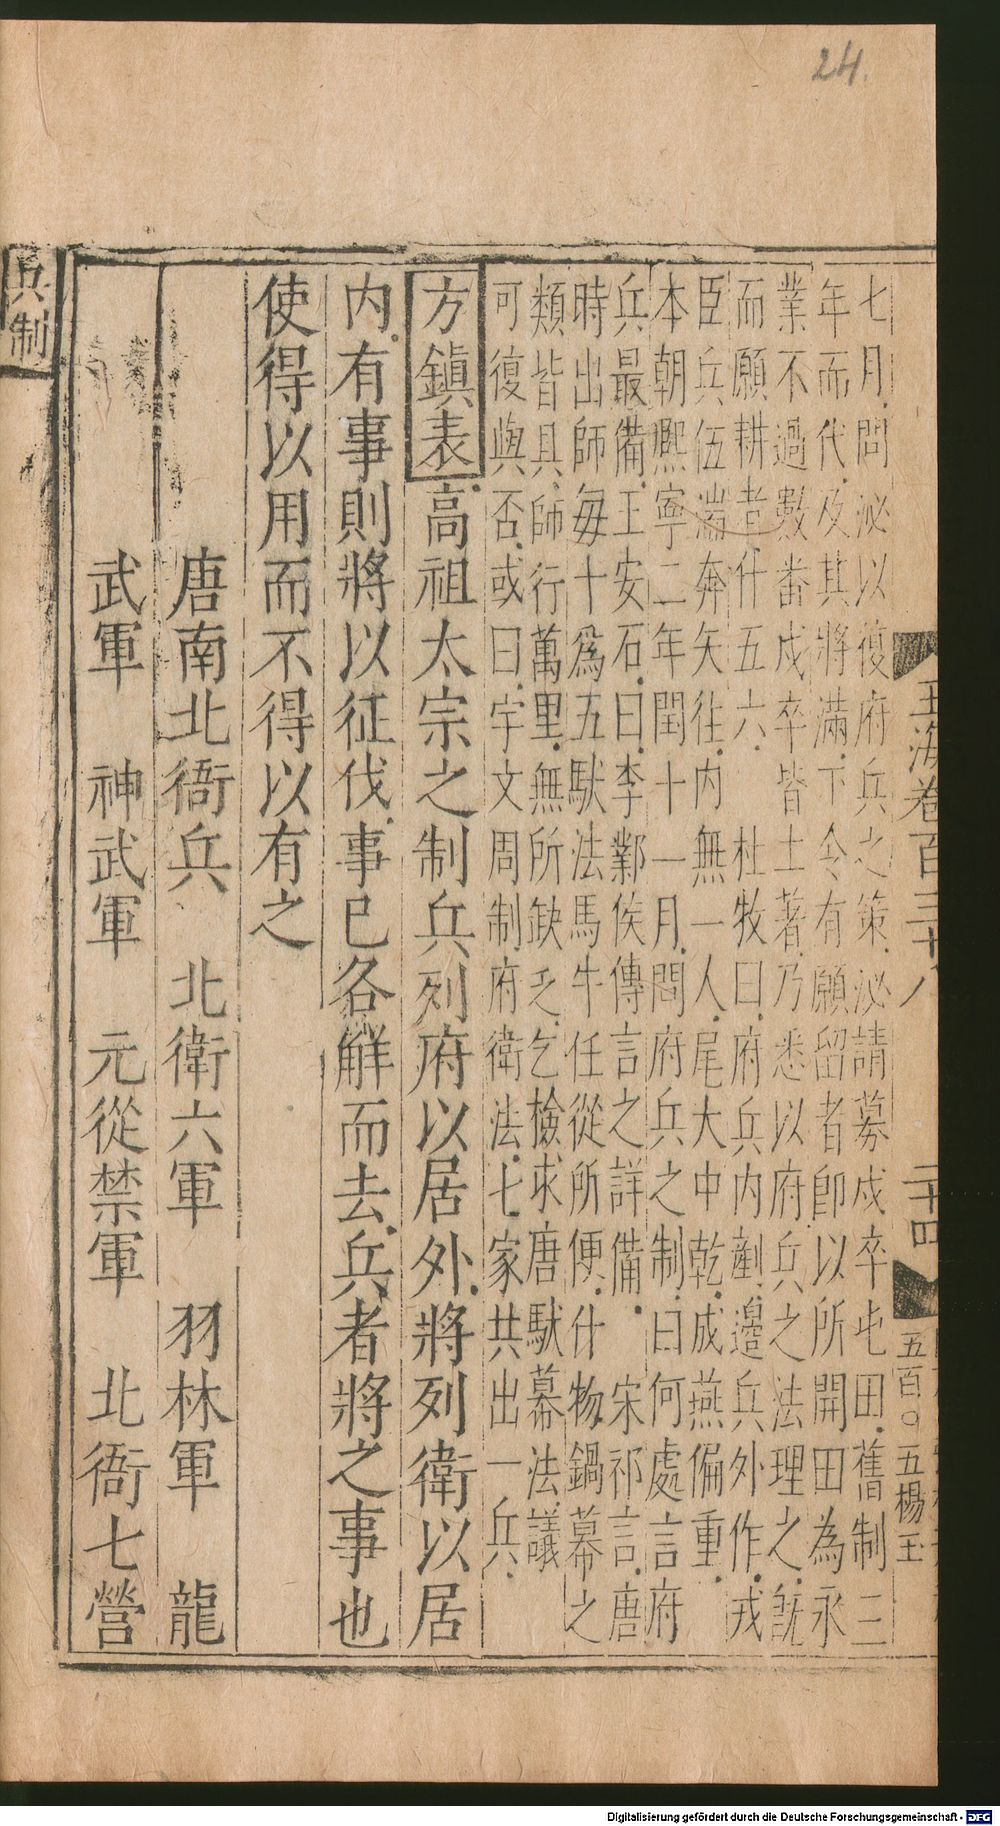 24.
玉海卷百三十八
二十四
五百〇五楊玉
七月問泌以復府兵之策泌請募戍卒屯田舊制三
年而代及其將滿下令有願留者卽以所開田為永
業不過數番戍卒皆土著乃悉以府兵之法理之旣
而願耕者什五六 杜牧曰府兵內剷邊兵外作戎
臣兵伍湍奔矢往內無一人尾大中乾成燕偏重
本朝熈寧二年閏十一月問府兵之制曰何處言府
兵最備王安石曰李鄴侯傳言之詳備 宋祁言唐
時出師每十爲五馱法馬牛任從所便什物鍋幕之
類皆具師行萬里無所缺乏乞檢求唐馱幕法議
可復與否或曰宇文周制府衛法七家共出一兵
方鎭表高祖太宗之制兵列府以居外將列衛以居
內有事則將以征伐事已各解而去兵者將之事也
使得以用而不得以有之
唐南北衙兵 北衛六軍 羽林軍 龍
武軍 神武軍 元從禁軍 北衙七營
兵制
Digitalisierung gefördert durch die Deutsche Forschungsgemeinschaft - DFG